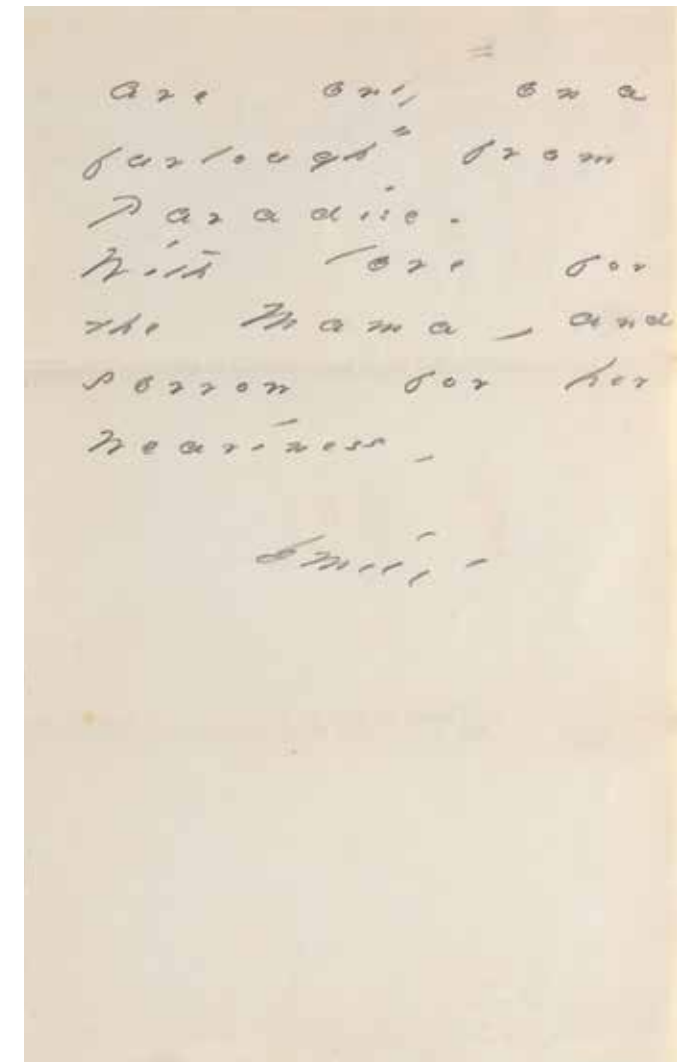 are only on a
furlough" from
Paradise.
With love for
the Mama, and
sorrow for her
weariness,
Emily -